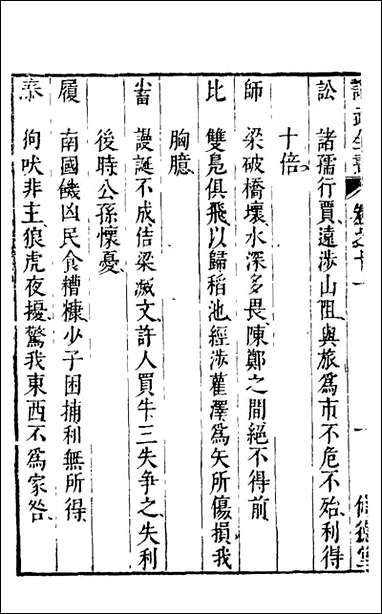 卷之十一
一
訟 諸孺行賈遠涉山阻與旅爲市不危不殆利得
十倍
師 梁破橋壞水深多畏陳鄭之間絕不得前
比 雙鳧俱飛以歸稻池經涉雚澤爲矢所傷損我
胸臆
小畜 謾誕不成佶梁滅文許人買牛三失爭之失利
後時公孫懷憂
履 南國饑凶民食糟糠少子困捕利無所得
泰 狗吠非主狼虎夜擾驚我東西不爲家咎